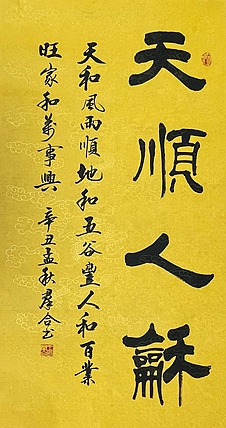 天順人龢
天和風雨順地和五谷豐人和百業
旺家和萬事興 辛丑孟秋群合書